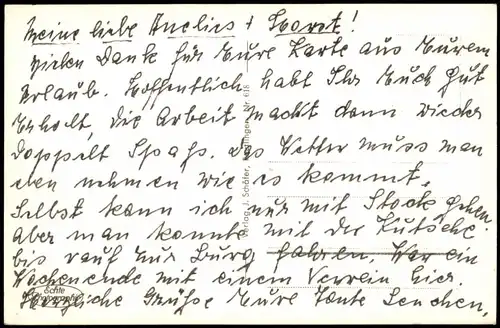 Meine liebe Anelies + Horst!
Vielen Dank für Eure Karte aus Eurem
Urlaub. Hoffentlich habt Ihr Euch gut
Erholt, die Arbeit macht dann wieder
Doppelt Spaß. Das Wetter muss man
eben nehmen wie es kommt.
Selbst kann ich nur mit Stock gehen.
Aber man konnte mit der Kutsche
bis rauf zur Burg fahren. War ein
Wochenende mit einem Verein hier.
Herzliche Grüße Eure Tante Lenchen.
Verlag J. Schäfer, Nr. 618
Echte
Photographie